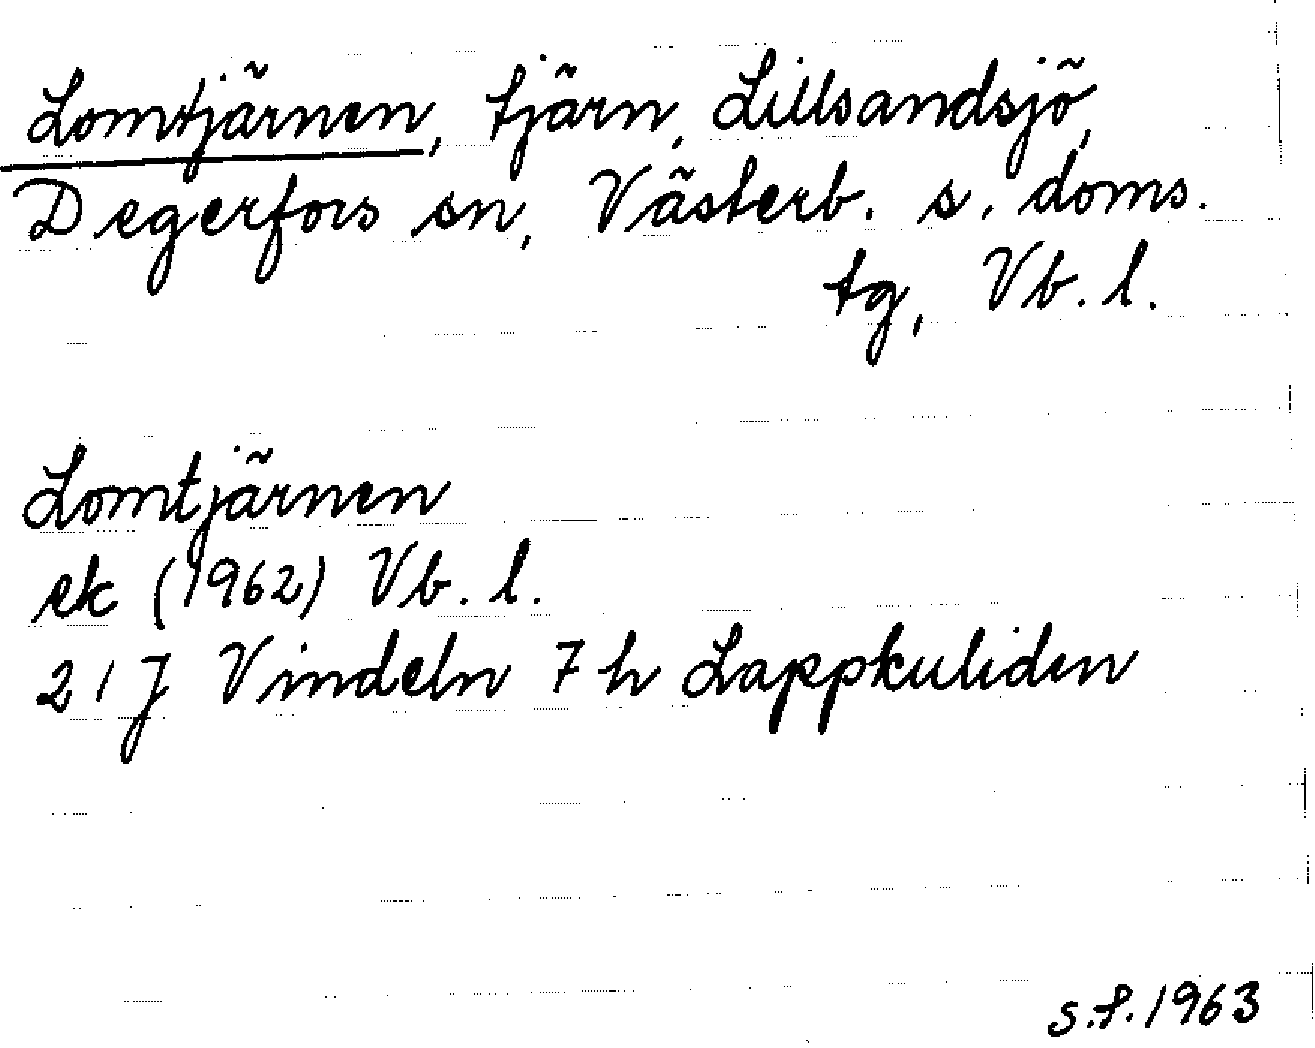 Lomtjärnen, tjärn, Lillsandsjö,
Degerfors sn, Västerb. s. doms.
tg, Vb. l.
Lomtjärnen
ek (1962) Vb. l.
21 J Vindeln 7 h Lappkuliden
s.f. 1963